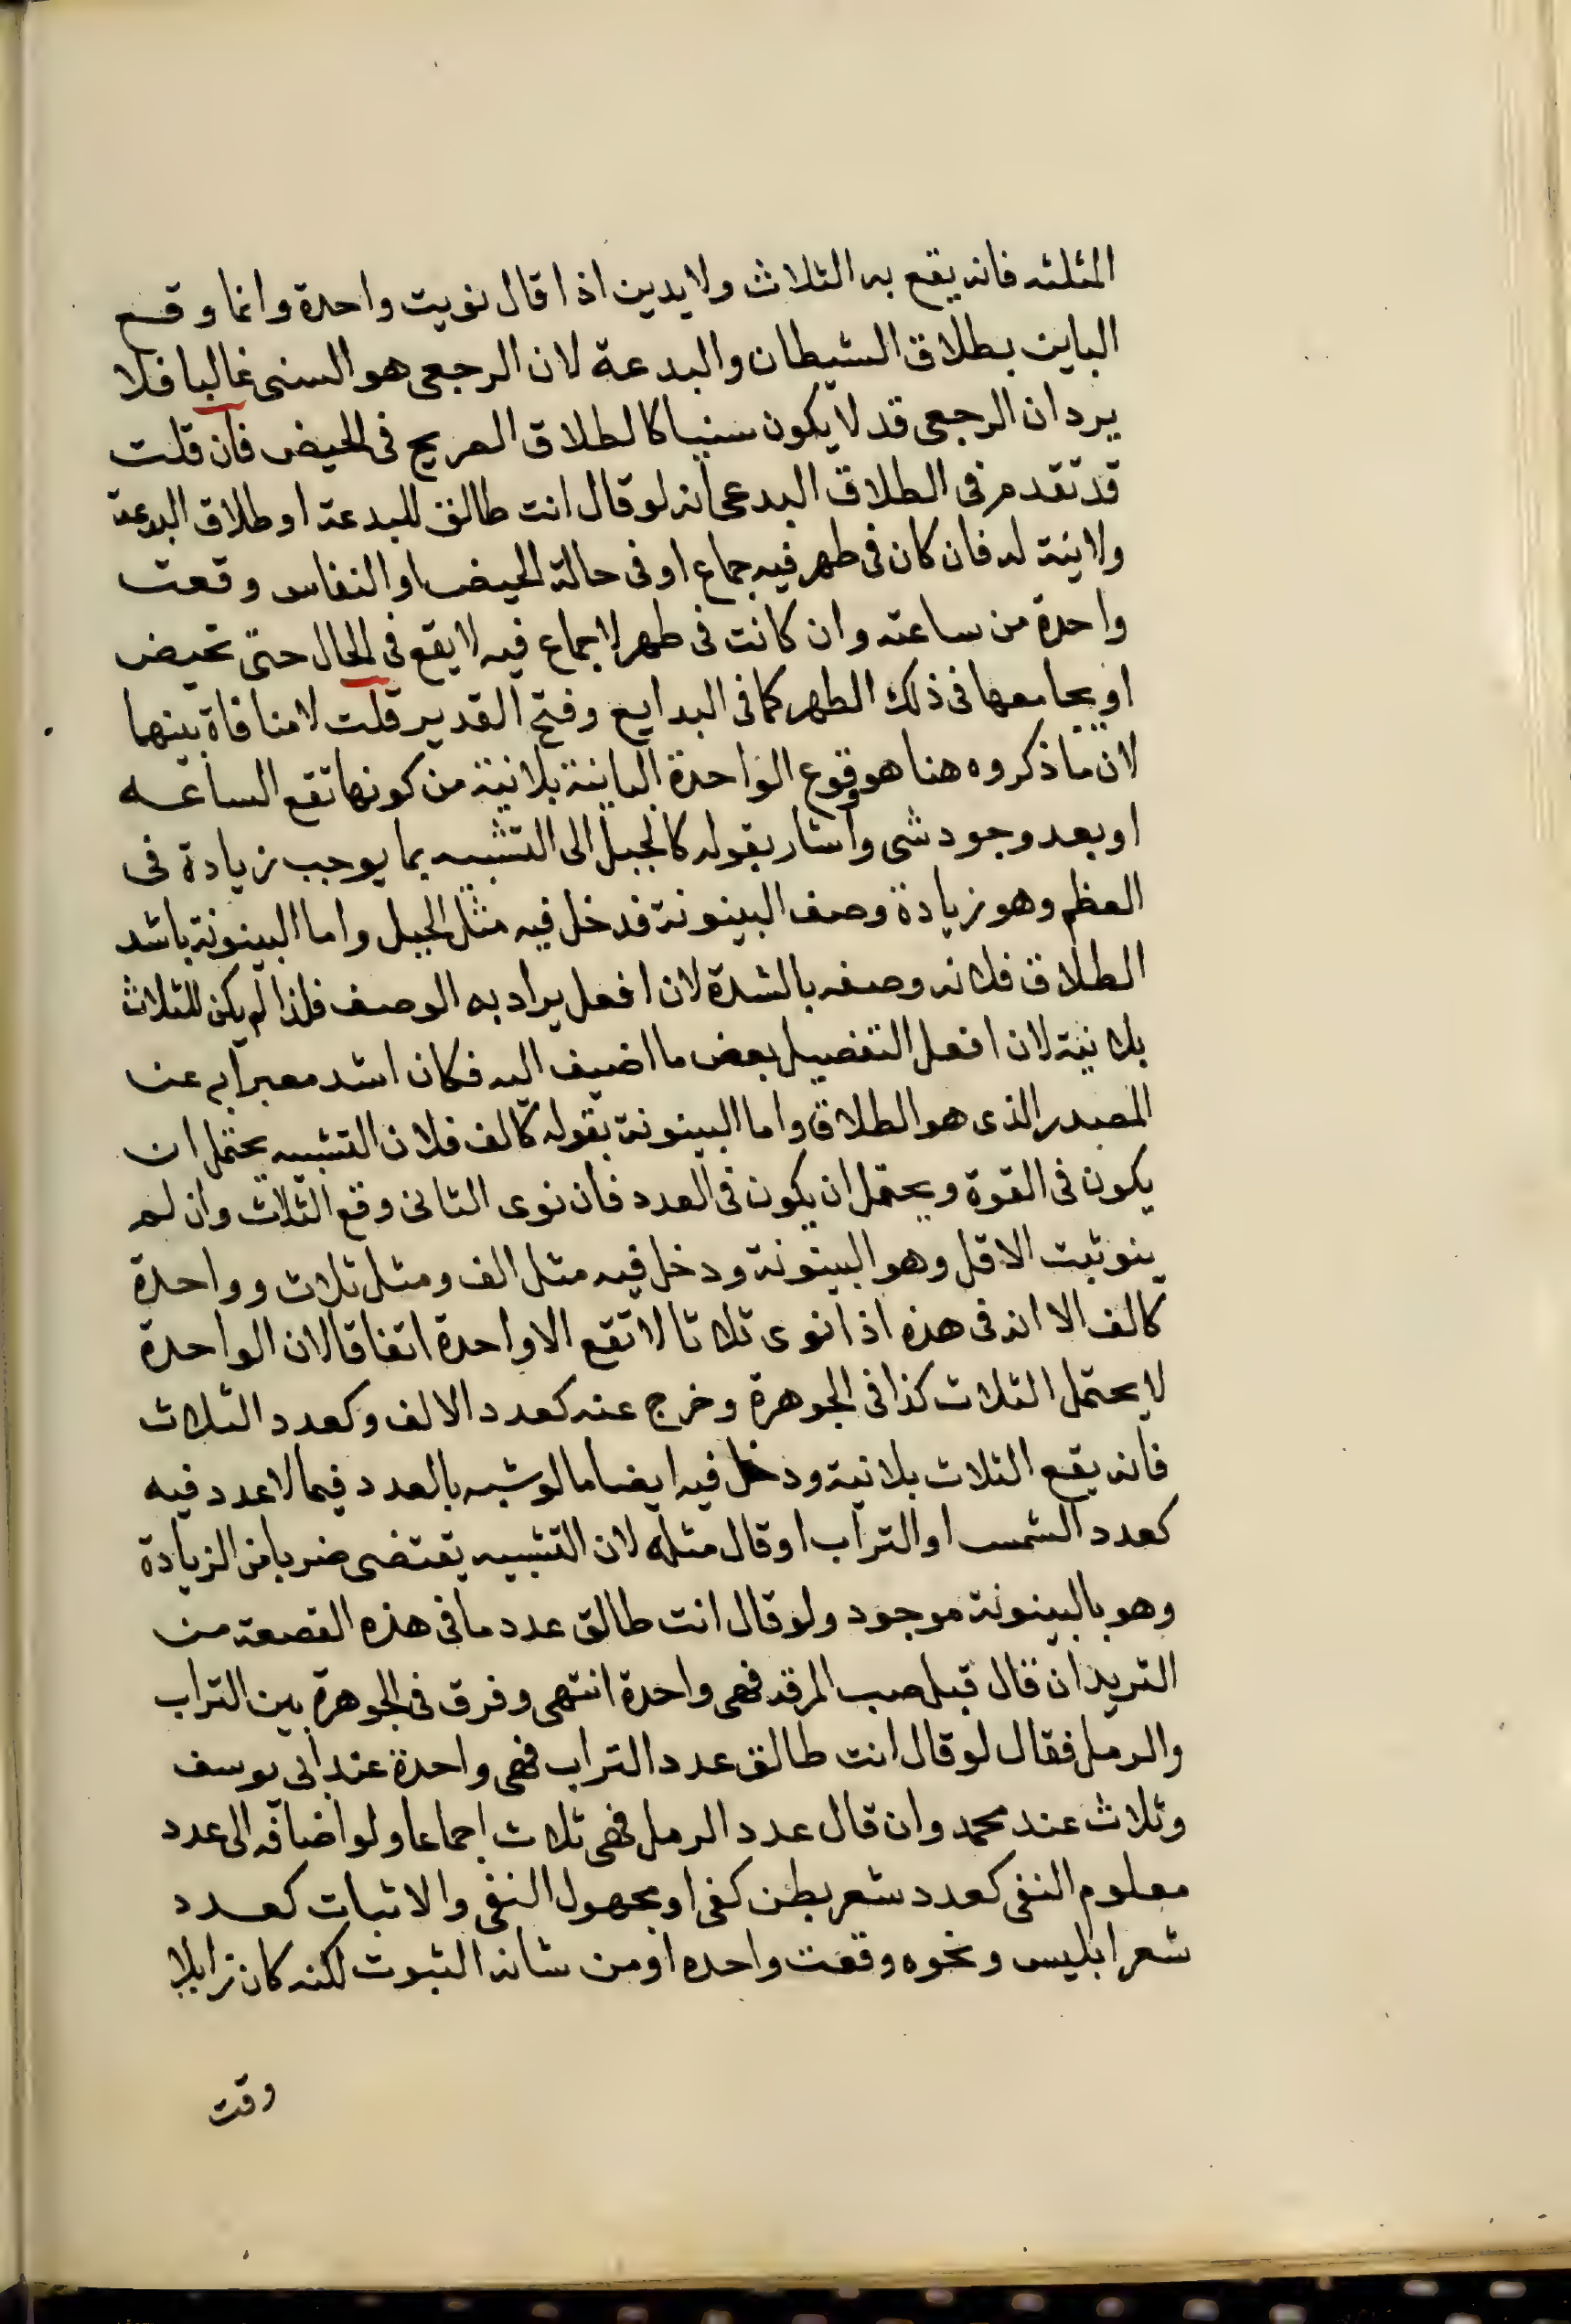 المثلثه فانه يقع به الثلاث ولا يدين اذا قال نويت واحدة وانما وقع
الباين بطلاق الشيطان والبدعة لان الرجعى هو السنى غالبا فلا
يرد ان الرجعى قد لا يكون سنيا كالطلاق الصريح فى الحيض فان قلت
قد تقدم فى الطلاق البدعى انه لو قال انت طالق للبدعة او طلاق البدعة
ولا نية له فان كان فى طهر فيه جماع او فى حالة الحيض او النفاس وقعت
واحدة من ساعته وان كانت فى طهر لا جماع فيه لا يقع فى الحال حتى تحيض
او يجامعها فى ذلك الطهر كما فى البدايع وفتح القدير قلت لا منافاة بينهما
لان ما ذكروه هنا هو وقوع الواحدة الباينة بلا نية من كونها تقع الساعه
او بعد وجود شى واشار بقوله كالجبل الى التشبيه بما يوجب زيادة فى
العظم وهو زيادة وصف البينونة فدخل فيه مثل الجبل واما البينونة باشد
الطلاق فلانه وصفه بالشدة لان افعل يراد به الوصف فلذا لم يكن للثلاث
بلا نية لان افعل التفضيل بعض ما اضيف اليه فكان اشد معبرا به عن
المصدر الذى هو الطلاق واما البينونة بقوله كالف فلان التشبيه يحتمل ان
يكون فى القوة ويحتمل ان يكون فى العدد فان نوى الثانى وقع الثلاث وان لم
ينو ثبت الاقل وهو البينونة ودخل فيه مثل الف ومثل ثلاث وواحدة
كالف الا انه فى هذه اذا نوى ثلاثا لا تقع الا واحدة اتفاقا لان الواحدة
لا يحتمل الثلاث كذا فى الجوهرة وخرج عنه كعدد الالف وكعدد الثلاث
فانه يقع الثلاث بلا نية ودخل فيه ايضا ما لو شبه بالعدد فيما لا عدد فيه
كعدد الشمس او التراب او قال مثله لان التشبيه يقتضى ضربا من الزيادة
وهو بالبينونة موجود ولو قال انت طالق عدد ما فى هذه القصعة من
الثريد ان قال قبل صب المرقه فهى واحدة انتهى وفرق فى الجوهرة بين التراب
والرمل فقال لو قال انت طالق عدد التراب فهى واحدة عند ابى يوسف
وثلاث عند محمد وان قال عدد الرمل فهى ثلاث اجماعا ولو اضافه الى عدد
معلوم النفى كعدد شعر بطن كفى او مجهول النفى والاثبات كعدد
شعر ابليس ونحوه وقعت واحده او من شانه الثبوت لكنه كان زايلا
وقت